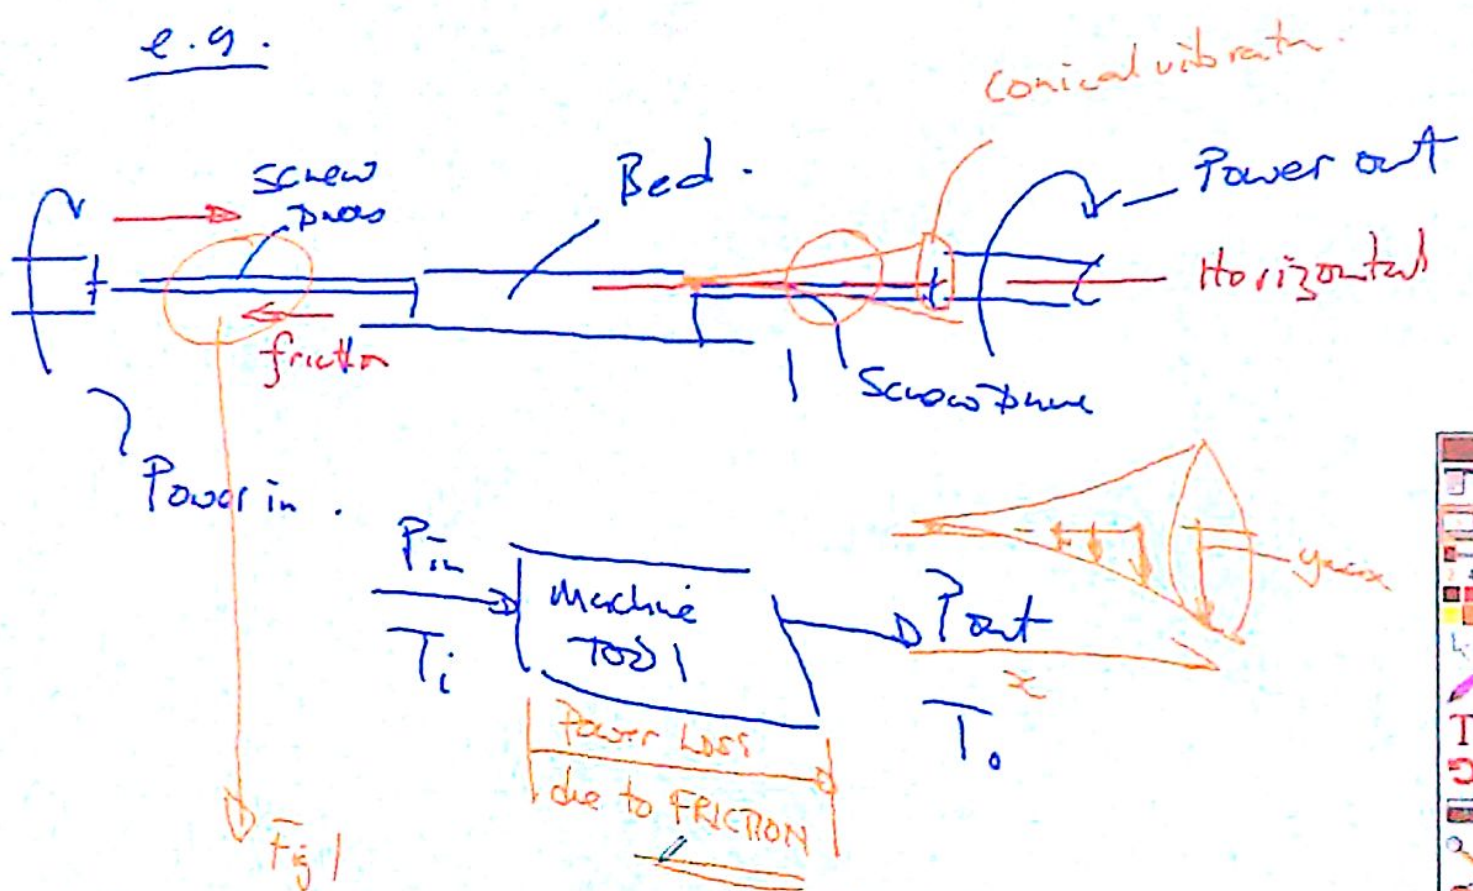 e.g.
Conical vibratn.
Screw
Bed.
Power out
Horizontal
friction
Screw
Power in.
Pin
Machine
Tool
Pout
ymax
Ti
x
To
Power Loss
due to FRICTION
Fig 1
T